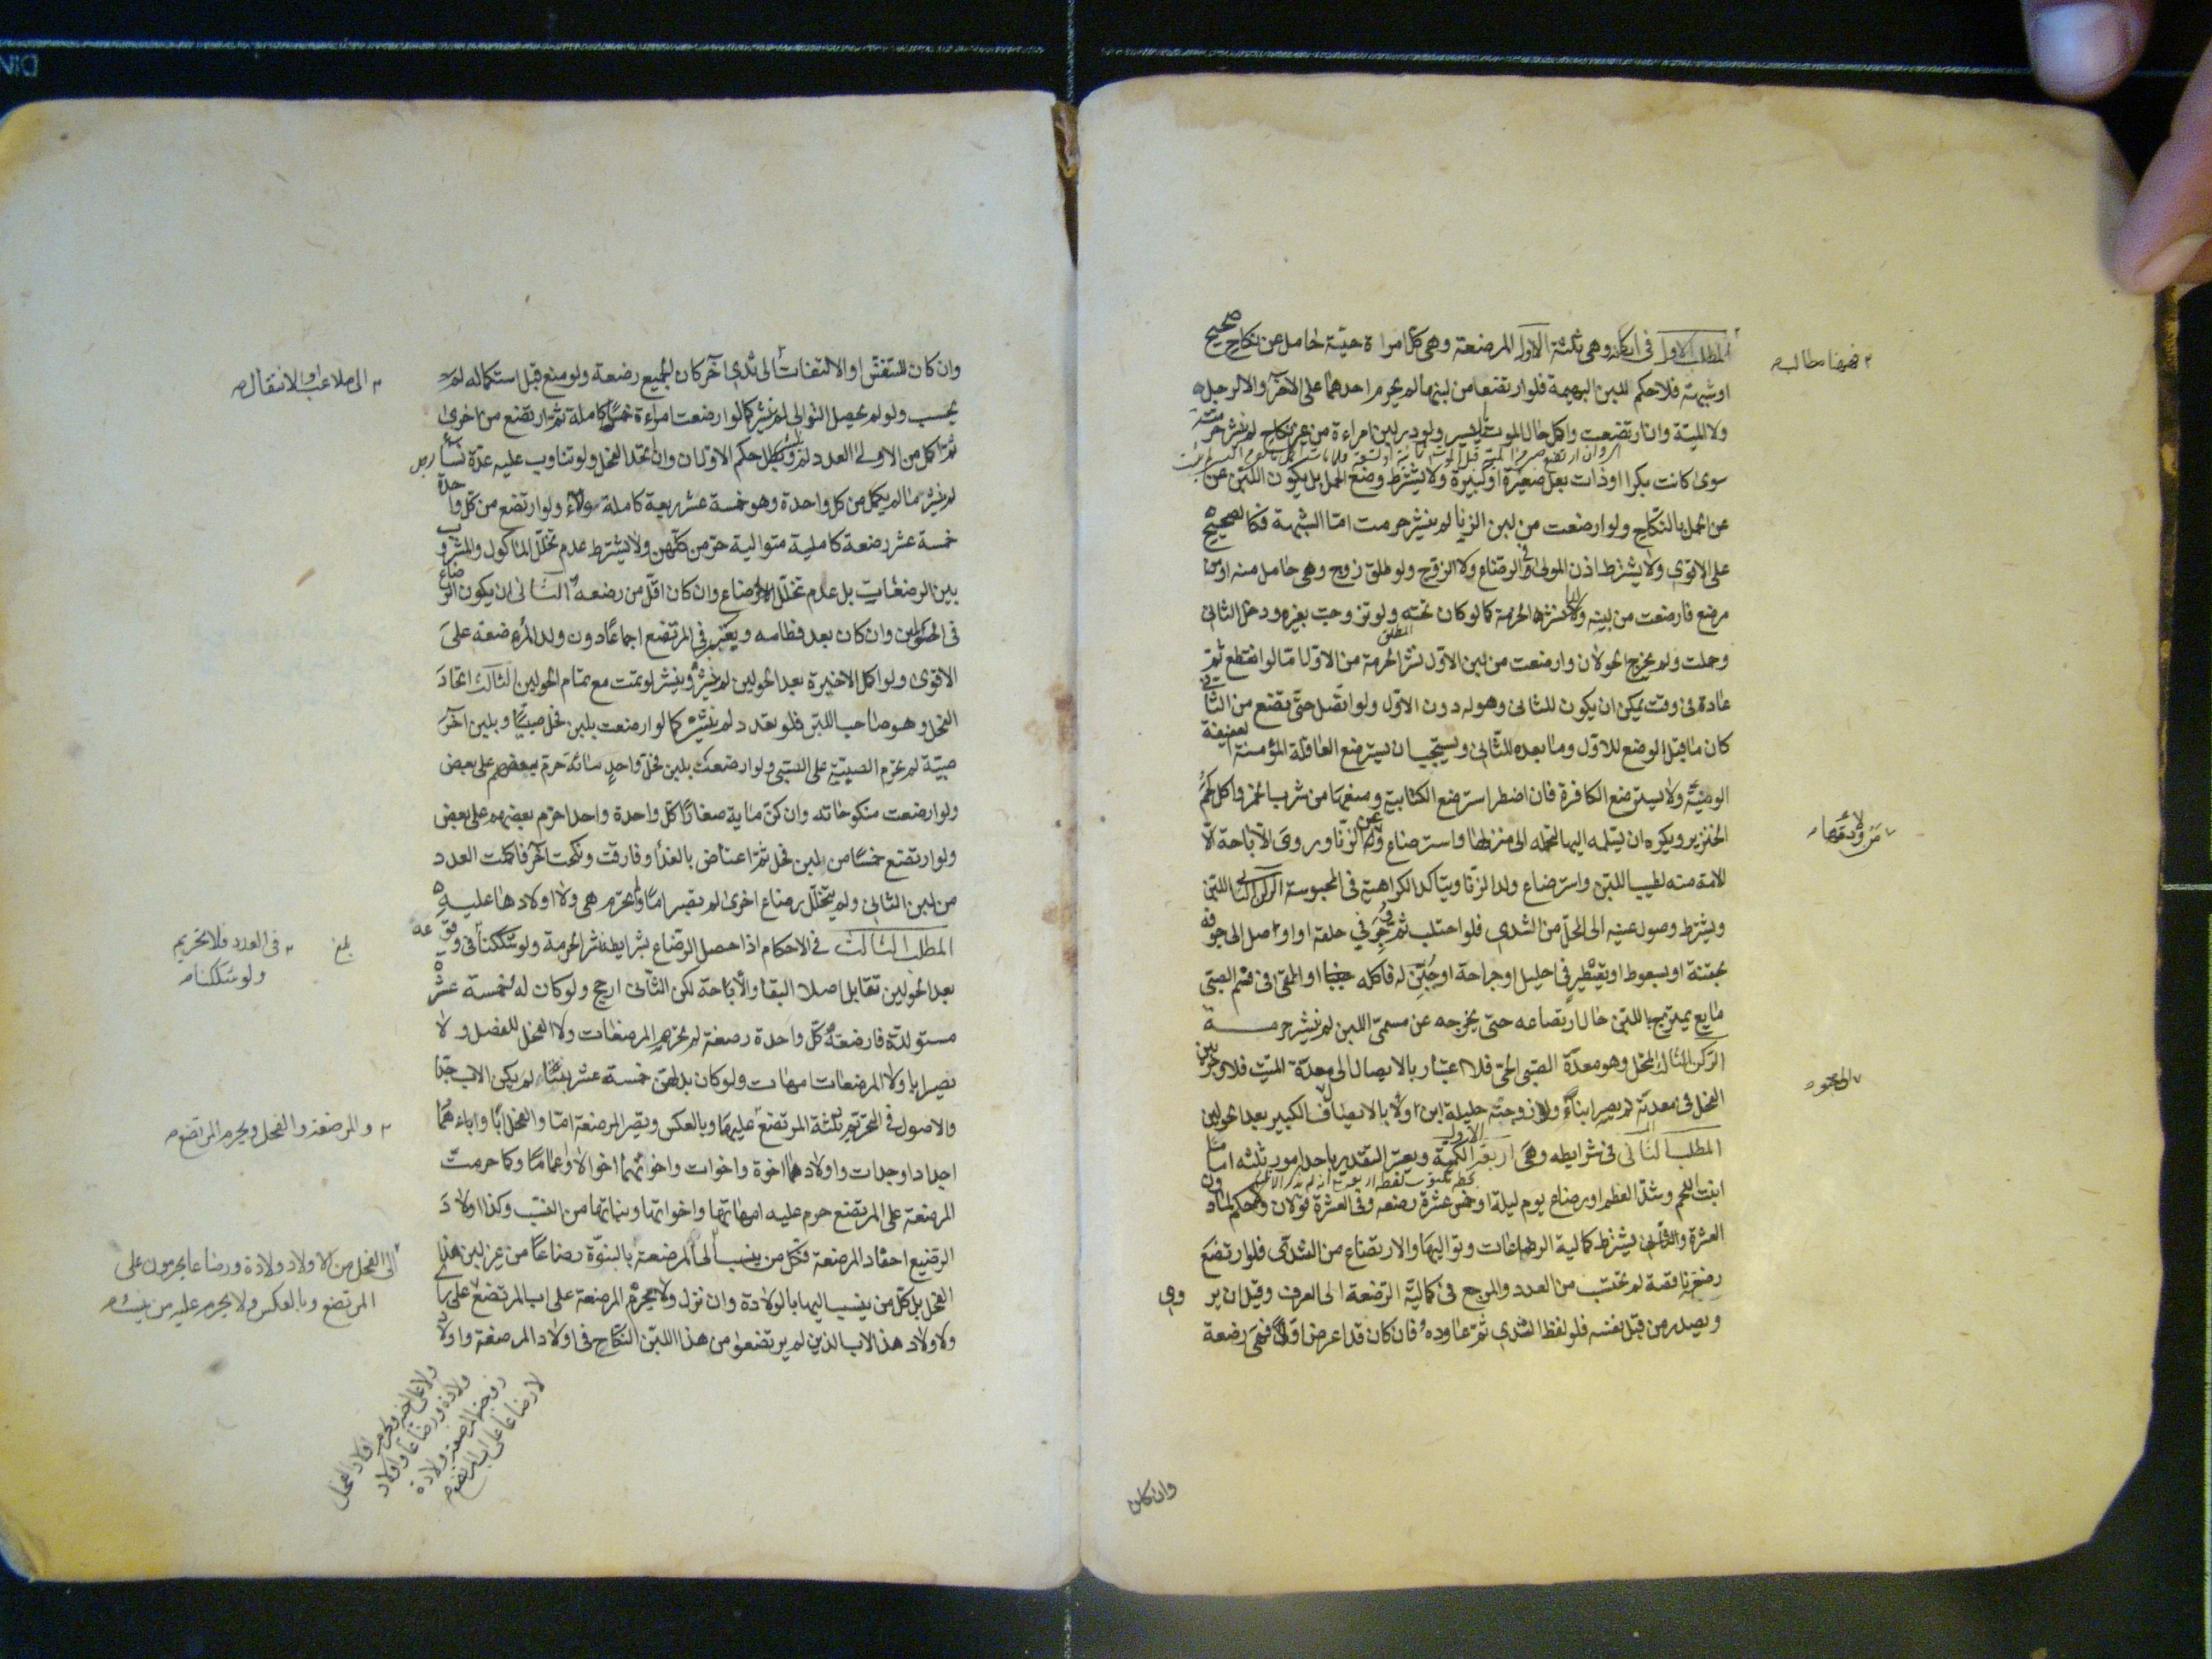 المطلب الاول فى اركانه وهى ثلثة الاول المرضعة وهى كل امراة حية حامل عن نكاح صحيح
فههنا مطالب
او شبهة فلا حكم للبن البهيمة فلو ارتضعا من لبنها لم يحرم احدهما على الاخر ولا الرجل
ولا الميتة وان ارتضعت واكمل حال الموت باليسير ولو در لبن امراءة من غير نكاح لم ينشر حرمة
سوى كانت بكرا او ذات بعل صغيرة او كبيرة ولا يشترط وضع الحمل بل يكون اللبن عن
عن الحمل بالنكاح ولو ارضعت من لبن الزنا لم ينشر حرمت اما الشبهة فكالصحيح
على الاقوى ولا يشترط اذن المولى فى الرضاع ولا الزوج ولو طلق زوج وهى حامل منه او
مرضع فارضعت من لبنه الولد نشر الحرمة كما لو كان تحته ولو تزوجت بغيره ودخل الثانى
وحملت ولم يخرج الحولان وارضعت من لبن الاول نشر الحرمة من الاول اما لو انقطع ثم
عادة فى وقت يمكن ان يكون للثانى فهو له دون الاول ولو اتصل حتى تضع من الثانى
كان ما قبل الوضع للاول وما بعده للثانى ويستحب ان يسترضع العاقلة المؤمنة العفيفة
الوضيئة ولا يسترضع الكافرة فان اضطر استرضع الكتابية ومنعها من شرب الخمر واكل لحم
الخنزير ويكره ان يسلمه اليها لتحمله الى منزلها واسترضاع من ولادتها عن الزنا وروى الاباحة الا
للامة منه لطيب اللبن واسترضاع ولد الزنا ويتاكد الكراهية فى المجوسية الركن الثانى اللبن
ويشترط وصول عينه الى المحل من الثدى فلو احتلب ثم وجر فى حلقه او اوصل الى جوفه
بحقنة او بسعوط او بتقطير فى احليل او جراحة او جبن له فاكله جبنا او القى فى فم الصبى
مايع يمتزج باللبن حال ارتضاعه حتى يخرجه عن مسمى اللبن لم ينشر حرمة
الركن الثالث المحل وهو معدة الصبى الحى فلا اعتبار بالايصال الى معدة الميت فلو وجر لبن
الفحل فى معدته لم يصر ابنا ولا زوجته حليلة ابن ولا بالايصال الى جوف الكبير بعد الحولين
المطلب الثانى فى شرايطه وهى اربعة الاول الكمية ويعتبر التقدير باحد امور ثلثه اما ما
انبت اللحم وشد العظم او رضاع يوم وليلة او خمس عشرة رضعه وفى العشرة قولان
العشرة يشترط كمالية الرضعات وتواليها والارتضاع من الثدى فلو ارتضع
رضعة ناقصة لم تحتسب من العدد والمرجع فى كمالية الرضعة الى العرف وقيل ان يروى
ويصدر من قبل نفسه فلو لفظ الثدى ثم عاوده فان كان قد اعرض اولا فهى رضعة
وان كان
وان كان للتنفس او الالتفات الى ملاعب او الانتقال الى ثدى آخر كان الجميع رضعة ولو منع قبل استكماله لم
يحسب ولو لم يحصل التوالى لم ينشر كما لو ارضعت امراءة خمسا كاملة ثم ارتضع من اخرى
ثم اكمل من الاولى العدد لم ينشر وبطل حكم الاول وان اتحد الفحل ولو تناوب عليه عدة نساء
لم ينشر ما لم يكمل من كل واحدة وهو خمسة عشر رضعة كاملة ولاء ولو ارتضع من كل واحدة
خمسة عشر رضعة كاملة متوالية حرمن كلهن ولا يشترط عدم تخلل الماكول والمشروب
بين الرضعات بل عدم تخلل الرضاع وان كان اقل من رضعه الثانى ان يكون الرضاع
فى الحولين وان كان بعد فطامه ويعتبر فى المرتضع اجماعا دون ولد المرضعة على
الاقوى ولو اكمل الاخيرة بعد الحولين لم ينشر وينشر لو تمت مع تمام الحولين الثالث اتحاد
الفحل وهو صاحب اللبن فلو تعدد لم ينشر كما لو ارضعت بلبن فحل صبيا وبلبن آخر
صبية لم تحرم الصبية على الصبى ولو ارضعت بلبن فحل واحد مائة حرم بعضهم على بعض
ولو ارضعت منكوحاته وان كن ماية صغارا كل واحدة واحدا حرم بعضهم على بعض
ولو ارتضع خمسا من لبن فحل ثم اعتاض بالغذا وفارقت ونكحت آخر فاكملت العدد
من لبن الثانى ولم يتخلل رضاع اخرى لم تصر اما ولم تحرم هى ولا اولادها عليه
المطلب الثالث فى الاحكام اذا حصل الرضاع بشرايطه نشر الحرمة ولو شككنا فى العدد فلا تحريم ولو شككنا فى وقوعه
بعد الحولين تقابل اصلا البقا والاباحة لكن الثانى ارجح ولو كان له خمسة عشرة
مستولدة فارضعته كل واحدة رضعة لم تحرم المرضعات ولا الفحل للفصل ولا
يصير ابا ولا المرضعات امهات ولو كان بدلهن خمسة عشر بنتا لم يكن الاب جدا
والاصول فى التحريم ثلثة المرتضع والمرضعة والفحل ويحرم المرتضع عليهما وبالعكس وتصير المرضعة اما والفحل ابا واباءهما
اجدادا وجدات واولادهما اخوة واخوات واخوانهما اخوالا واعماما وكما حرمت
المرضعة على المرتضع حرم عليه امهاتها واخواتها وبناتها من النسب وكذا اولاد
الرضيع احفاد المرضعة فكل من ينسب الى المرضعة بالبنوة رضاعا من غير لبن هذا
الى الفحل من الاولاد ولادة ورضاعا يحرمون على
المرتضع وبالعكس ولا يحرم عليه من ينسب
الفحل بل كل من ينسب اليها بالولادة وان نزل ولا تحرم المرضعة على اب المرتضع على راى
ولاولاد هذا الاب الذين لم يرتضعوا من هذا اللبن النكاح فى اولاد المرضعة واولاد
ولا على اخيه ويحرم اولاد الفحل
ولادة ورضاعا واولاد
زوجته المرضعة ولادة
لا رضاعا على اب المرتضع